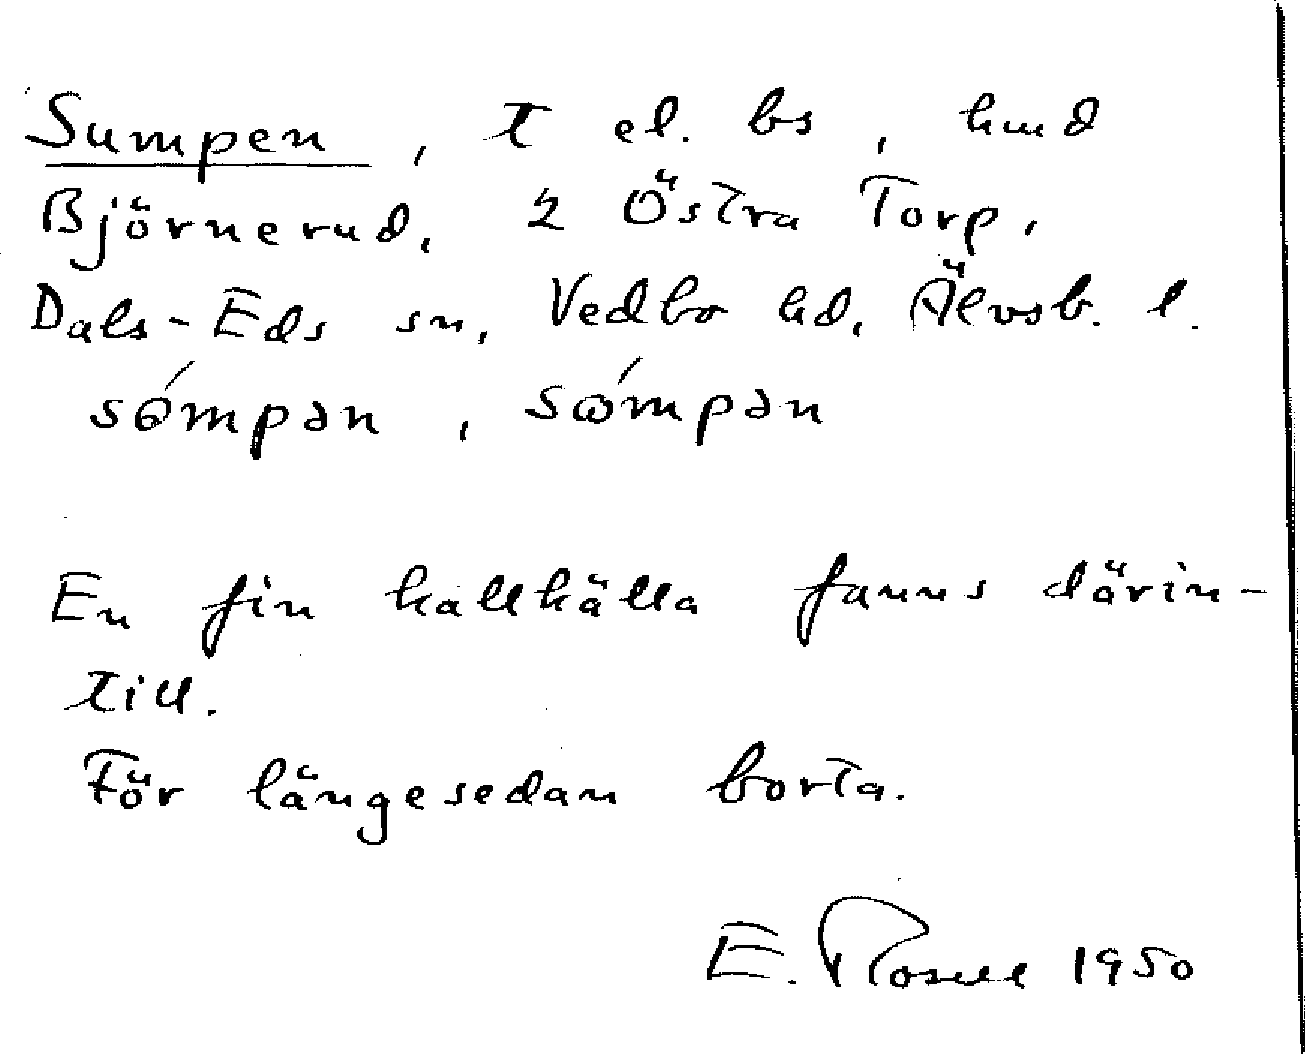 Sumpen, t el. bs, und
Björnerud, 2 Östra Torp,
Dals-Eds sn, Vedbo hd, Älvsb. l.
sómpən, sómpən
En fin kallkälla fanns därin-
till.
För längesedan borta.
E. Rosell 1950